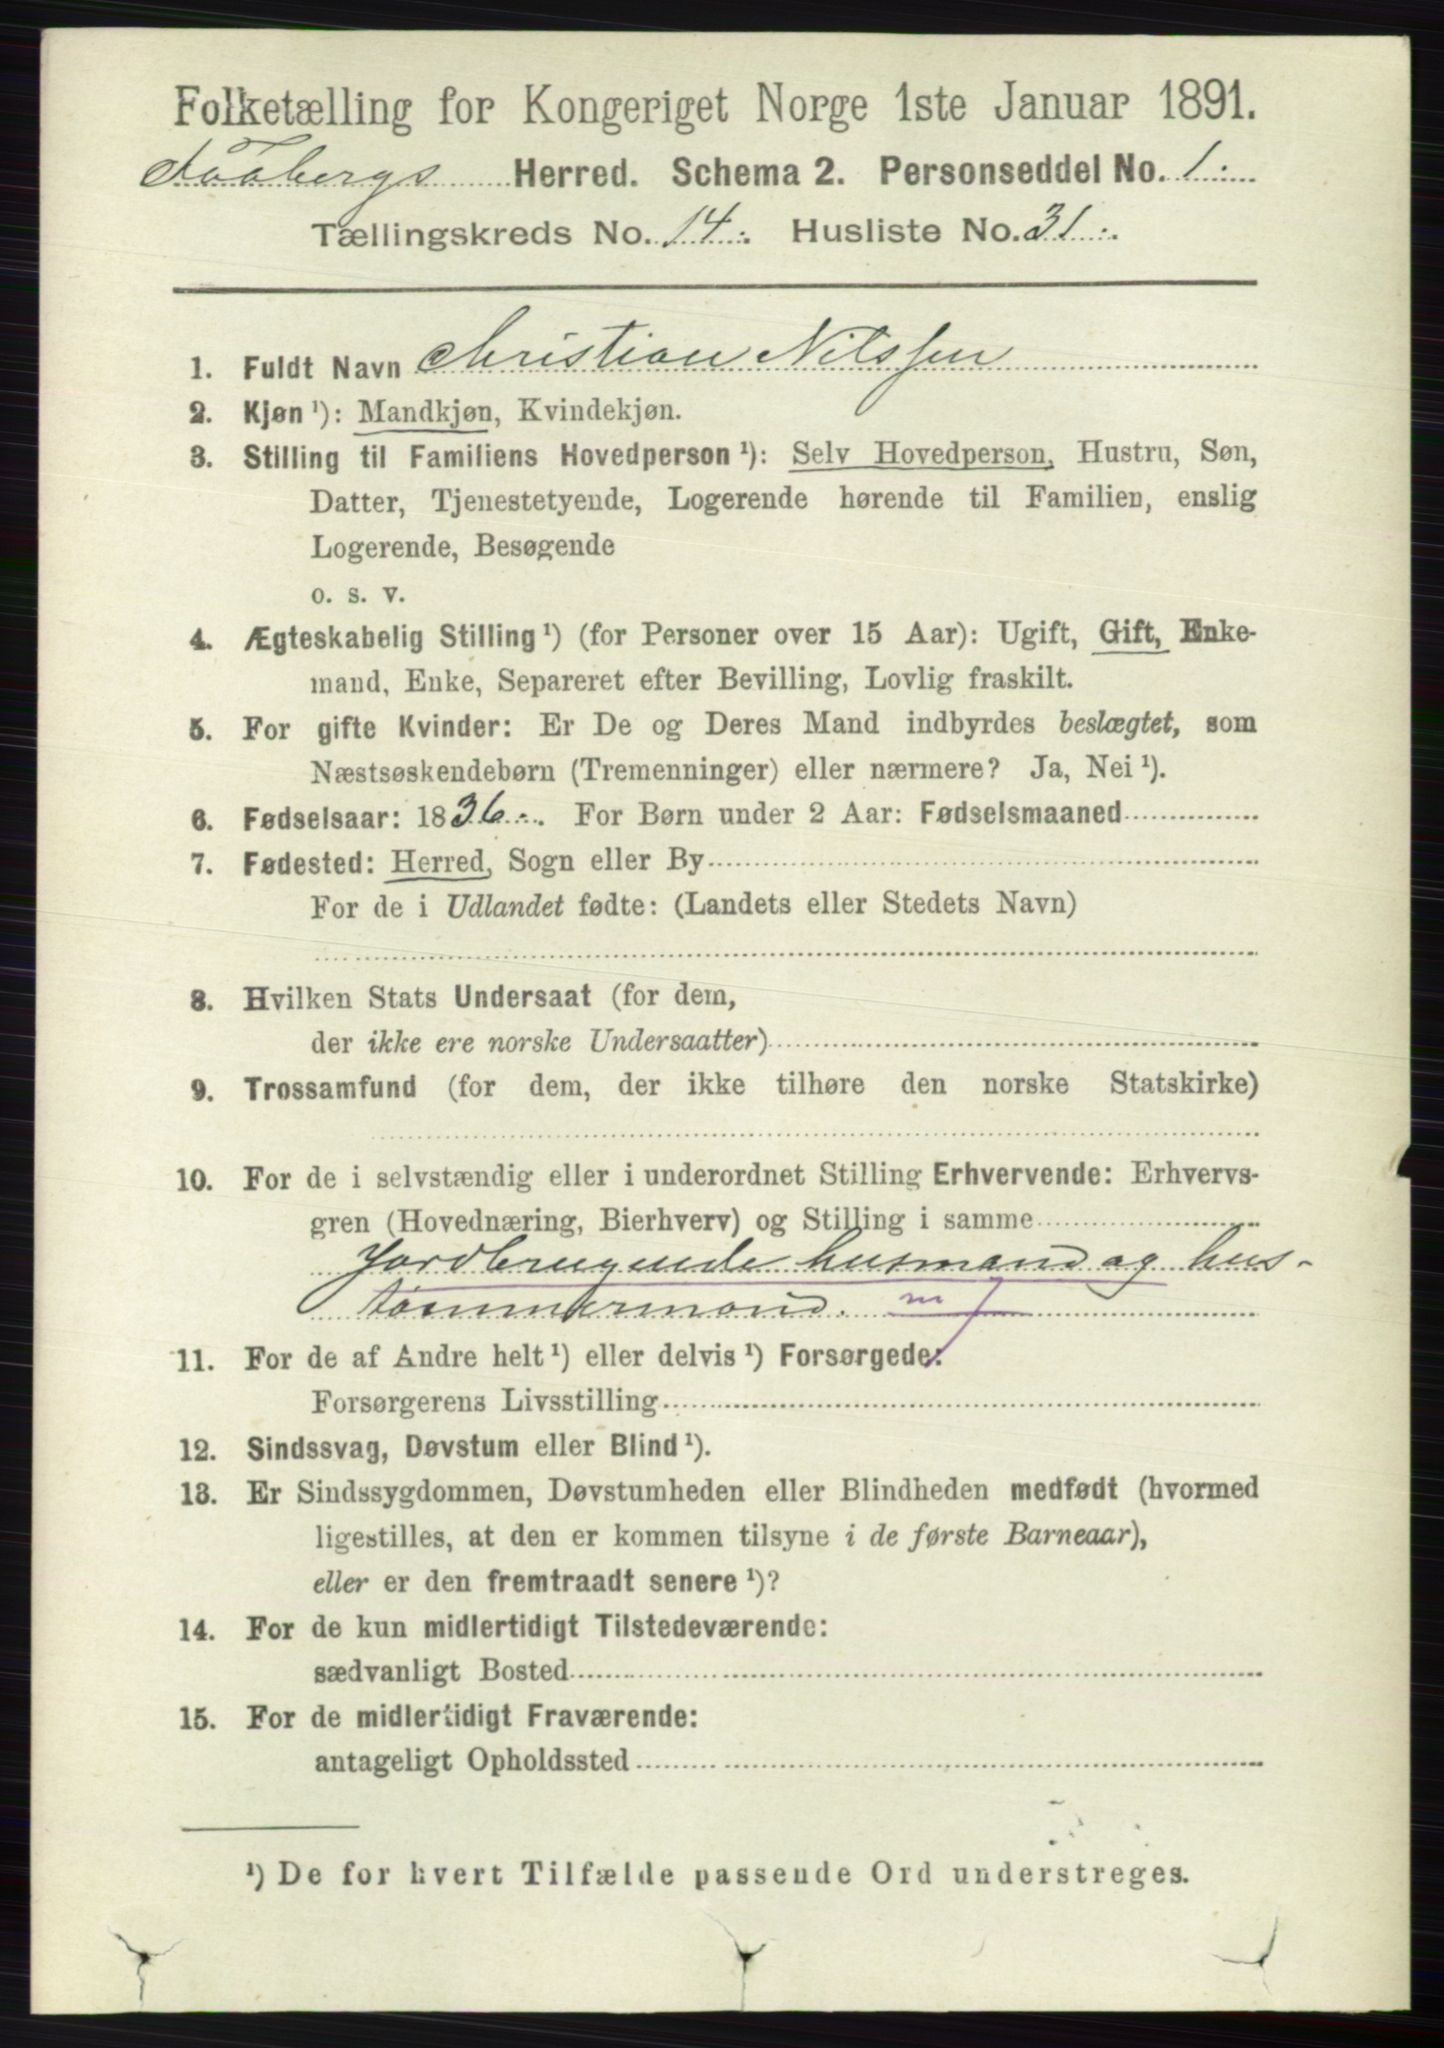 Folketælling for Kongeriget Norge 1ste Januar 1891.
Faabergs Herred. Schema 2. Personseddel No. 1.
Tællingskreds No. 14. Husliste No. 31.
1. Fuldt Navn Christian Nilssen
2. Kjøn ¹): Mandkjøn, Kvindekjøn.
3. Stilling til Familiens Hovedperson ¹): Selv Hovedperson, Hustru, Søn,
Datter, Tjenestetyende, Logerende hørende til Familien, enslig
Logerende, Besøgende
o. s. v.
4. Ægteskabelig Stilling ¹) (for Personer over 15 Aar): Ugift, Gift, Enke-
mand, Enke, Separeret efter Bevilling, Lovlig fraskilt.
5. For gifte Kvinder: Er De og Deres Mand indbyrdes beslægtet, som
Næstsøskendebørn (Tremenninger) eller nærmere? Ja, Nei ¹).
6. Fødselsaar: 1836. For Børn under 2 Aar: Fødselsmaaned
7. Fødested: Herred, Sogn eller By
For de i Udlandet fødte: (Landets eller Stedets Navn)
8. Hvilken Stats Undersaat (for dem,
der ikke ere norske Undersaatter)
9. Trossamfund (for dem, der ikke tilhøre den norske Statskirke)
10. For de i selvstændig eller i underordnet Stilling Erhvervende: Erhvervs-
gren (Hovednæring, Bierhverv) og Stilling i samme
Jordbrugende husmand og hus-
tømmermand. m
11. For de af Andre helt ¹) eller delvis ¹) Forsørgede:
Forsørgerens Livsstilling
12. Sindssvag, Døvstum eller Blind ¹).
13. Er Sindssygdommen, Døvstumheden eller Blindheden medfødt (hvormed
ligestilles, at den er kommen tilsyne i de første Barneaar),
eller er den fremtraadt senere ¹)?
14. For de kun midlertidigt Tilstedeværende:
sædvanligt Bosted
15. For de midlertidigt Fraværende:
antageligt Opholdssted
¹) De for hvert Tilfælde passende Ord understreges.